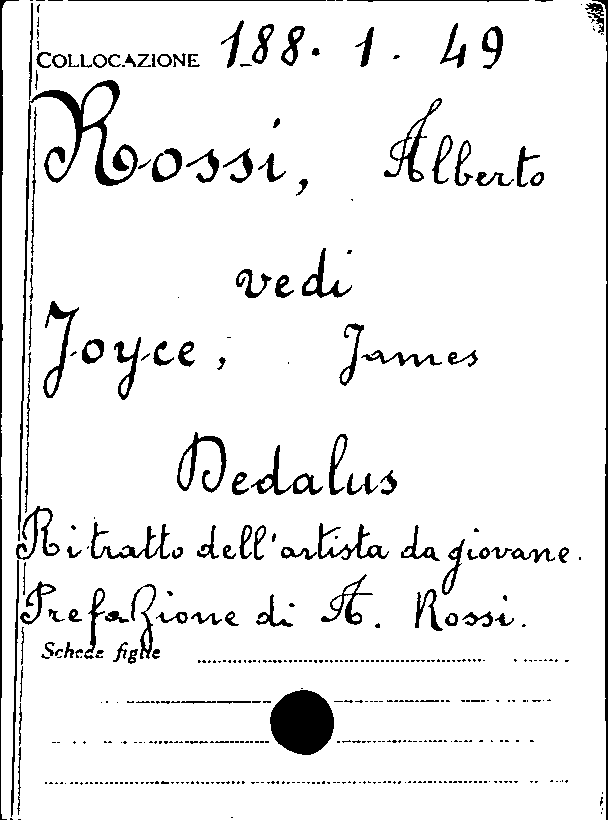 COLLOCAZIONE 188. 1. 49
Rossi, Alberto
vedi
Joyce, James
Dedalus
Ritratto dell'artista da giovane.
Prefazione di A. Rossi.
Schede figlie